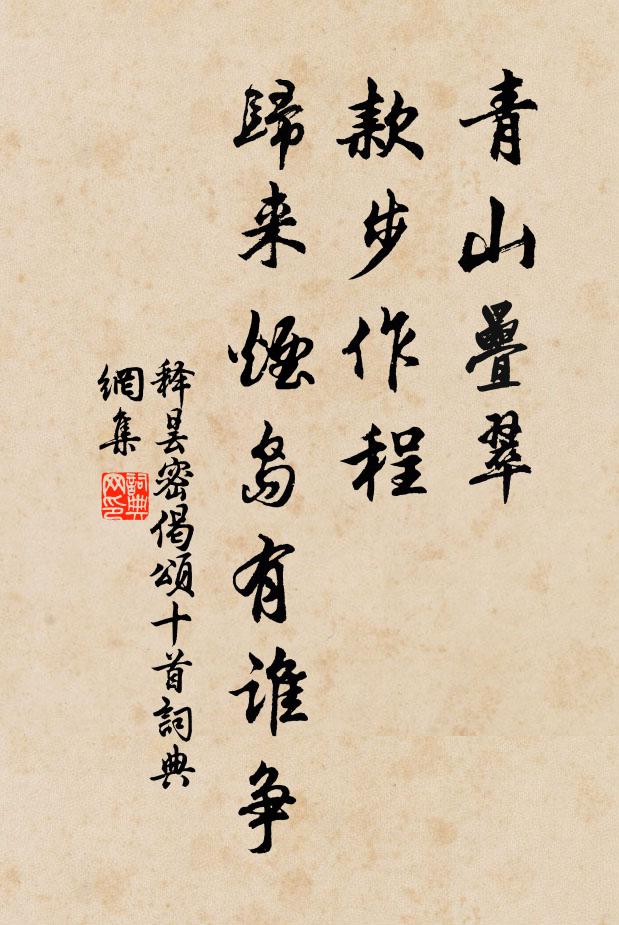 青山疊翠
款步作程
歸来煙島有誰争
释曇密偈頌十首詞典
網集
詞典
网印